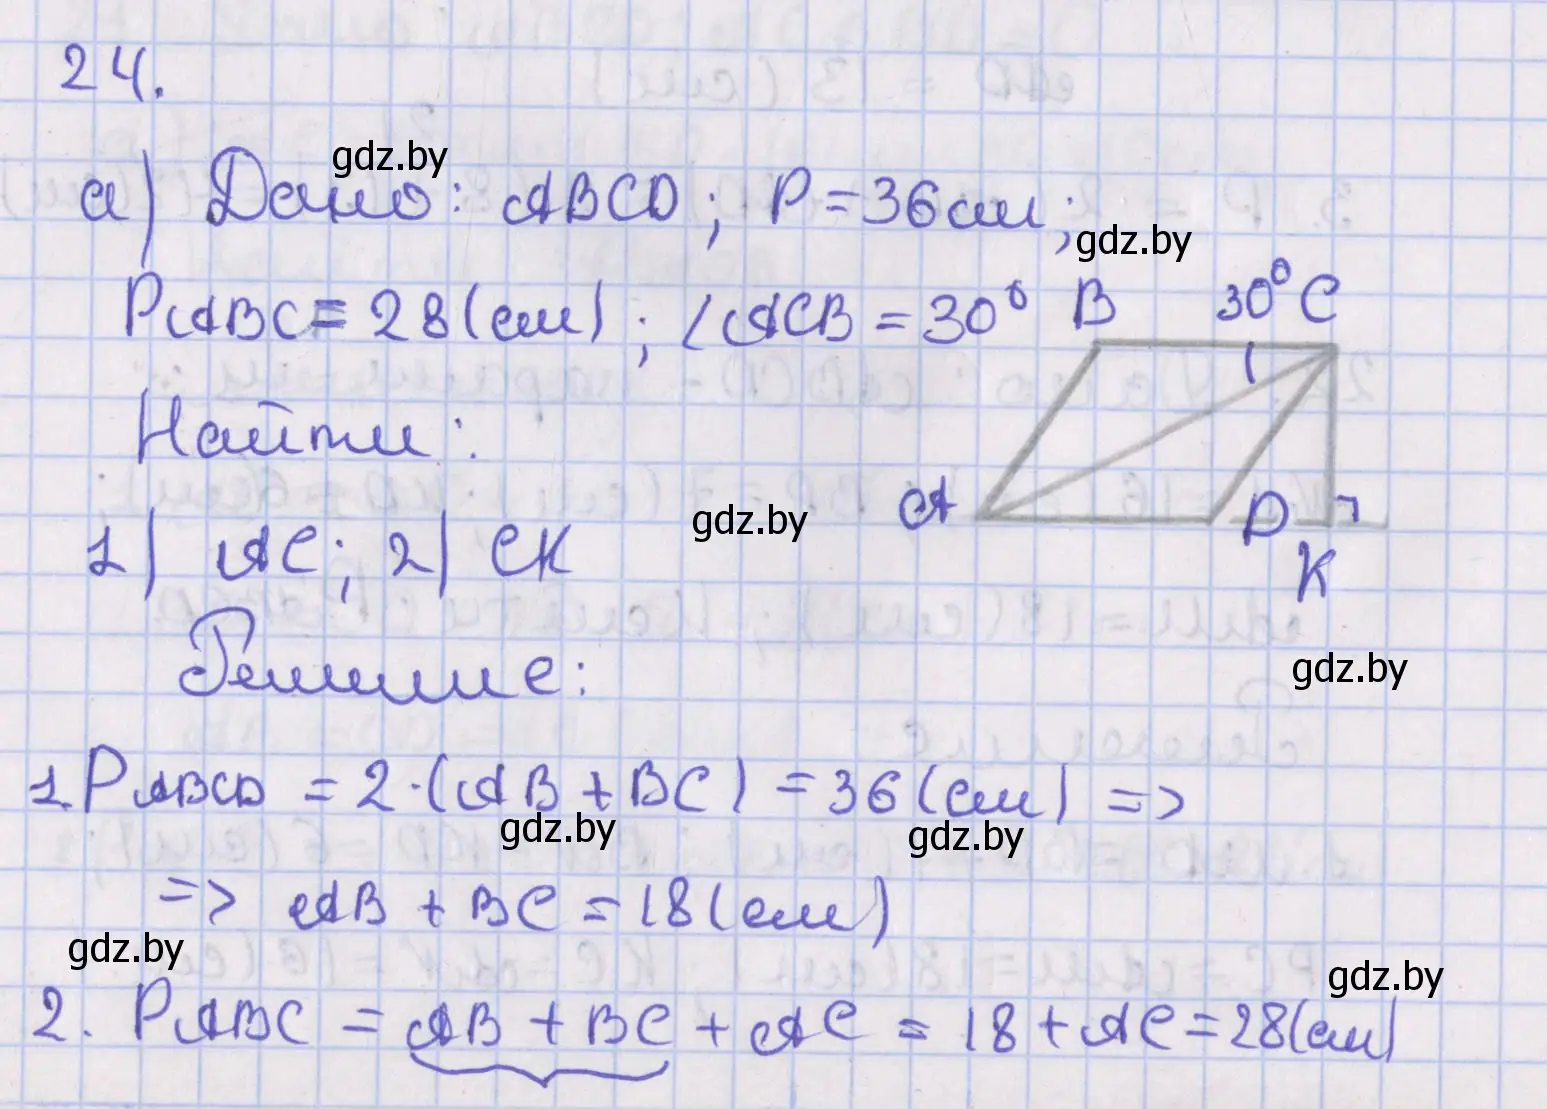 24.
gdz.by
а) Дано: ABCD; P = 36 см;
gdz.by
PABC = 28 (см); ∠ACB = 30°
B 30° C
Найти:
A D K
gdz.by
1) AC; 2) CK
Решение:
gdz.by
1. PABCD = 2·(AB + BC) = 36 (см) =>
gdz.by gdz.by
=> AB + BC = 18 (см)
gdz.by gdz.by
2. PABC = AB + BC + AC = 18 + AC = 28 (см)